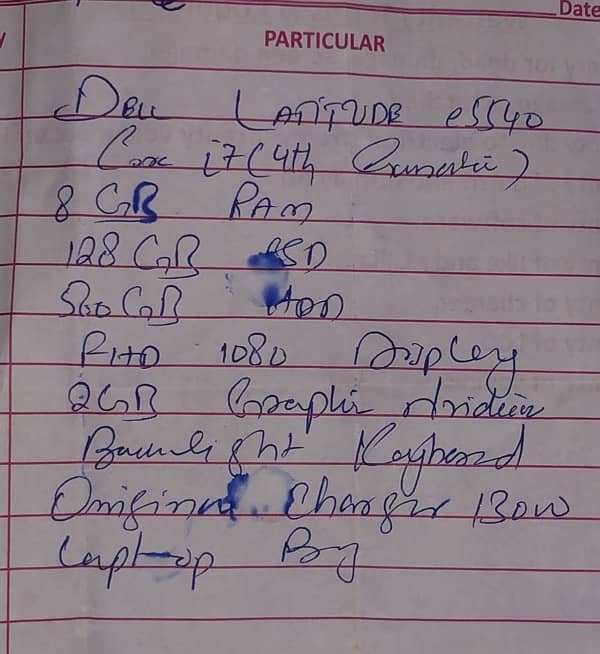 Date
PARTICULAR
DELL LATITUDE e5540
Core i7 (4th Generatio)
8 GB RAM
128 GB SSD
500 GB HDD
FHD 1080 Display
2GB Graphic nvidia
Backlight Keyboard
Original Charger 130W
Laptop Bag